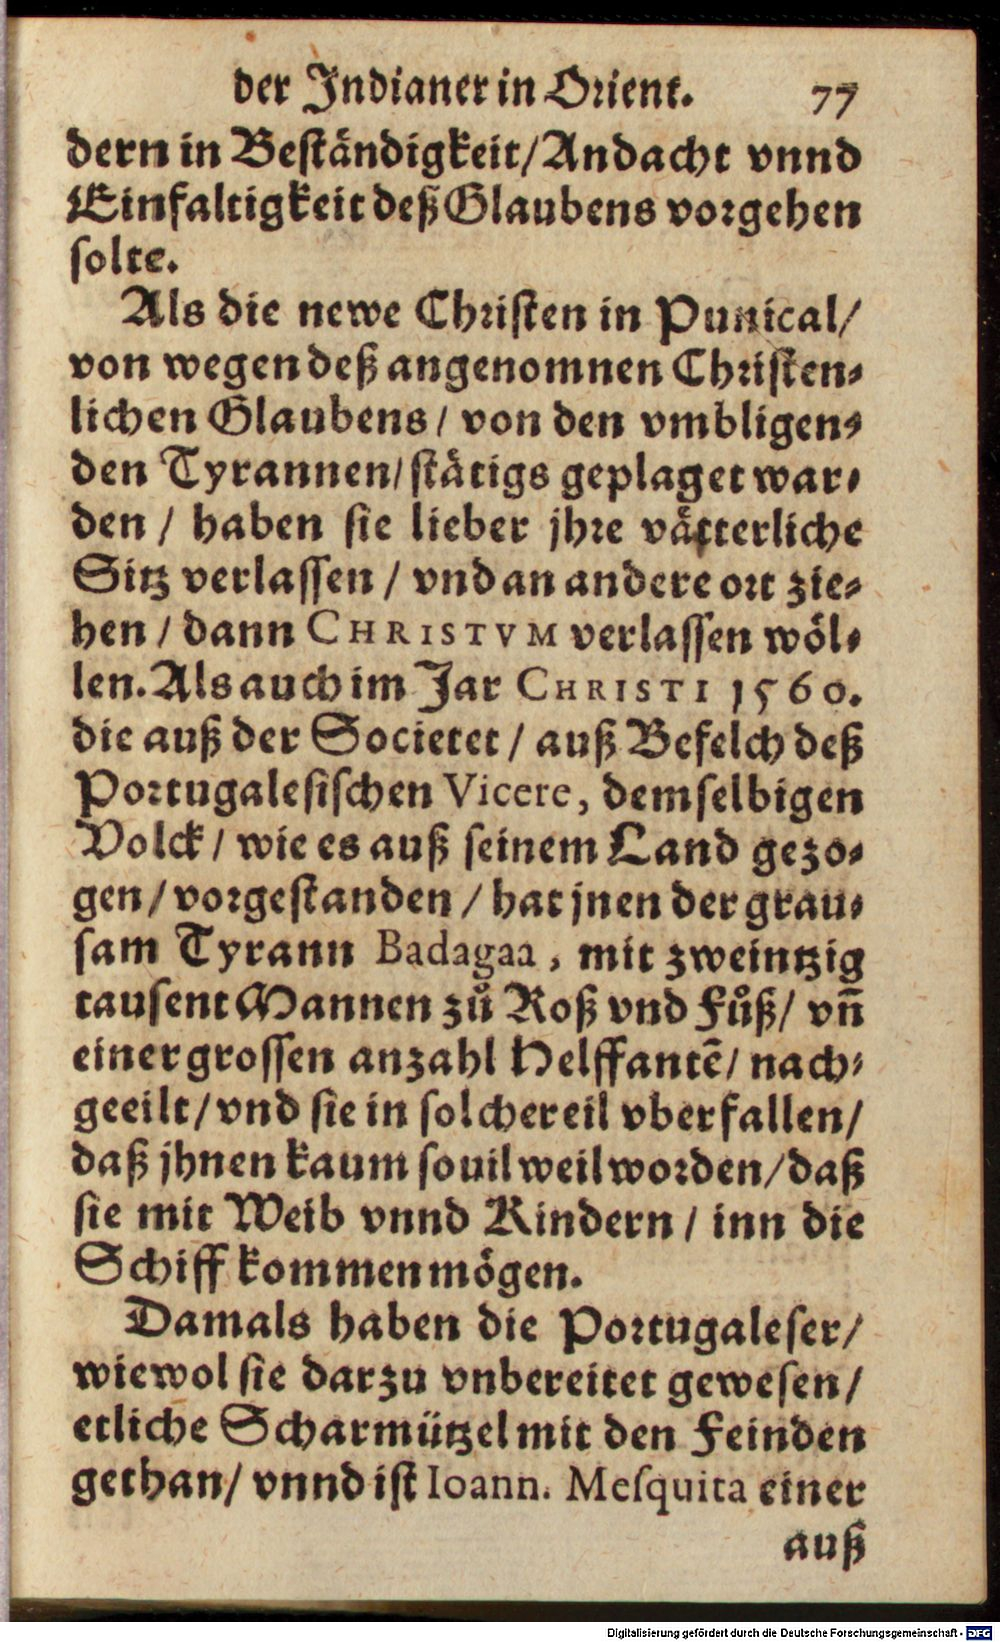 der Indianer in Orient. 77
dern in Beständigkeit/Andacht vnnd
Einfaltigkeit deß Glaubens vorgehen
solte.
Als die newe Christen in Punical/
von wegen deß angenomnen Christen⸗
lichen Glaubens/ von den vmbligen⸗
den Tyrannen/ stätigs geplaget war⸗
den / haben sie lieber jhre vätterliche
Sitz verlassen / vnd an andere ort zie⸗
hen / dann CHRISTVM verlassen wöl⸗
len. Als auch im Jar CHRISTI 1560.
die auß der Societet / auß Befelch deß
Portugalesischen Vicere, demselbigen
Volck / wie es auß seinem Land gezo⸗
gen / vorgestanden / hat jnen der grau⸗
sam Tyrann Badagaa, mit zweintzig
tausent Mannen zů Roß vnd Fůß/ vñ
einer grossen anzahl Helffantē/ nach⸗
geeilt/ vnd sie in solcher eil vberfallen/
daß jhnen kaum souil weil worden/daß
sie mit Weib vnnd Kindern / inn die
Schiff kommen mögen.
Damals haben die Portugaleser/
wiewol sie darzu vnbereitet gewesen/
etliche Scharmützel mit den Feinden
gethan/ vnnd ist Ioann. Mesquita einer
auß
Digitalisierung gefördert durch die Deutsche Forschungsgemeinschaft - DFG